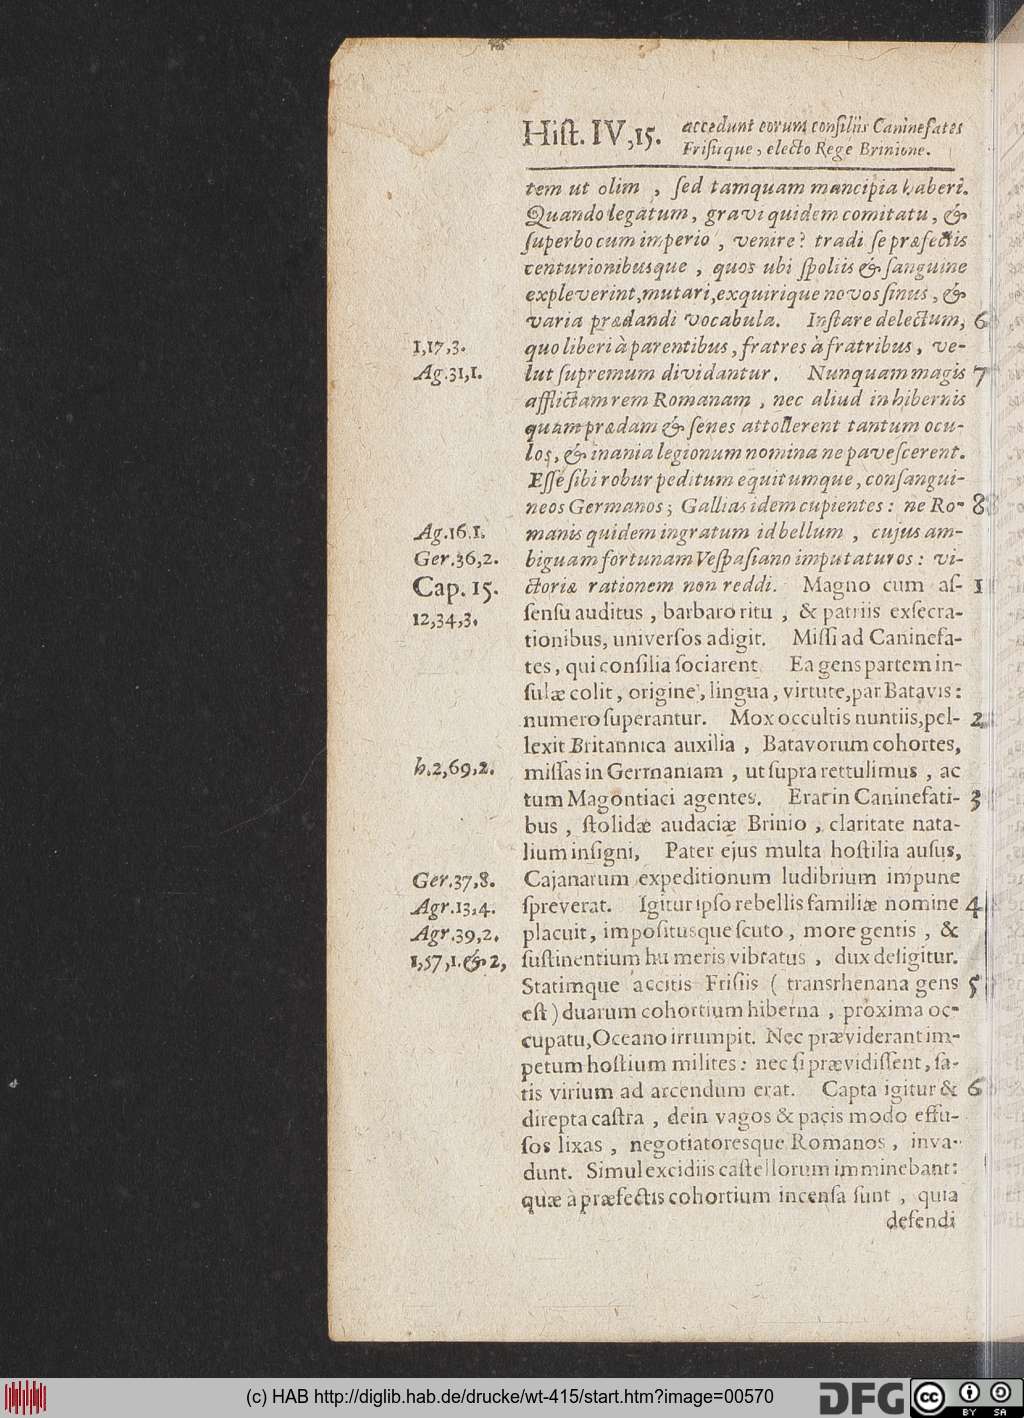 Hiſt. IV,15. accedunt eorum conſiliis Caninefates
Friſiique, electo Rege Brinione.
tem ut olim, ſed tamquam mancipia haberi.
Quando legatum, gravi quidem comitatu, &
ſuperbo cum imperio, venire? tradi ſe præfectis
centurionibusque, quos ubi ſpoliis & ſanguine
expleverint, mutari, exquirique novos ſinus, &
varia prædandi vocabula. Inſtare delectum, 6
1,17,3. quo liberi à parentibus, fratres à fratribus, ve-
Ag.31,1. lut ſupremum dividantur. Nunquam magis 7
afflictam rem Romanam, nec aliud in hibernis
quam prædam & ſenes attollerent tantum ocu-
los, & inania legionum nomina ne paveſcerent.
Eſſe ſibi robur peditum equitumque, conſangui-
neos Germanos; Gallias idem cupientes: ne Ro- 8
Ag.16.1. manis quidem ingratum id bellum, cujus am-
Ger.36,2. biguam fortunam Veſpaſiano imputaturos: vi-
Cap. 15. ctoriæ rationem non reddi. Magno cum aſ- 1
12,34,3. ſenſu auditus, barbaro ritu, & patriis exſecra-
tionibus, univerſos adigit. Miſſi ad Caninefa-
tes, qui conſilia ſociarent. Ea gens partem in-
ſulæ colit, origine, lingua, virtute, par Batavis:
numero ſuperantur. Mox occultis nuntiis, pel- 2
lexit Britannica auxilia, Batavorum cohortes,
h.2,69,2. miſſas in Germaniam, ut ſupra rettulimus, ac
tum Magontiaci agentes. Erat in Caninefati- 3
bus, ſtolidæ audaciæ Brinio, claritate nata-
lium inſigni, Pater ejus multa hoſtilia auſus,
Ger.37,8. Cajanarum expeditionum ludibrium impune
Agr.13,4. ſpreverat. Igitur ipſo rebellis familiæ nomine 4
Agr.39,2. placuit, impoſitusque ſcuto, more gentis, &
1,57,1.&2, ſuſtinentium humeris vibratus, dux deligitur.
Statimque accitis Friſiis (transrhenana gens 5
eſt) duarum cohortium hiberna, proxima oc-
cupatu, Oceano irrumpit. Nec præviderant im-
petum hoſtium milites: nec ſi prævidiſſent, ſa-
tis virium ad arcendum erat. Capta igitur & 6
direpta caſtra, dein vagos & pacis modo effu-
ſos lixas, negotiatoresque Romanos, inva-
dunt. Simul excidiis caſtellorum imminebant:
quæ à præfectis cohortium incenſa ſunt, quia
defendi
(c) HAB http://diglib.hab.de/drucke/wt-415/start.htm?image=00570
DFG
cc BY SA